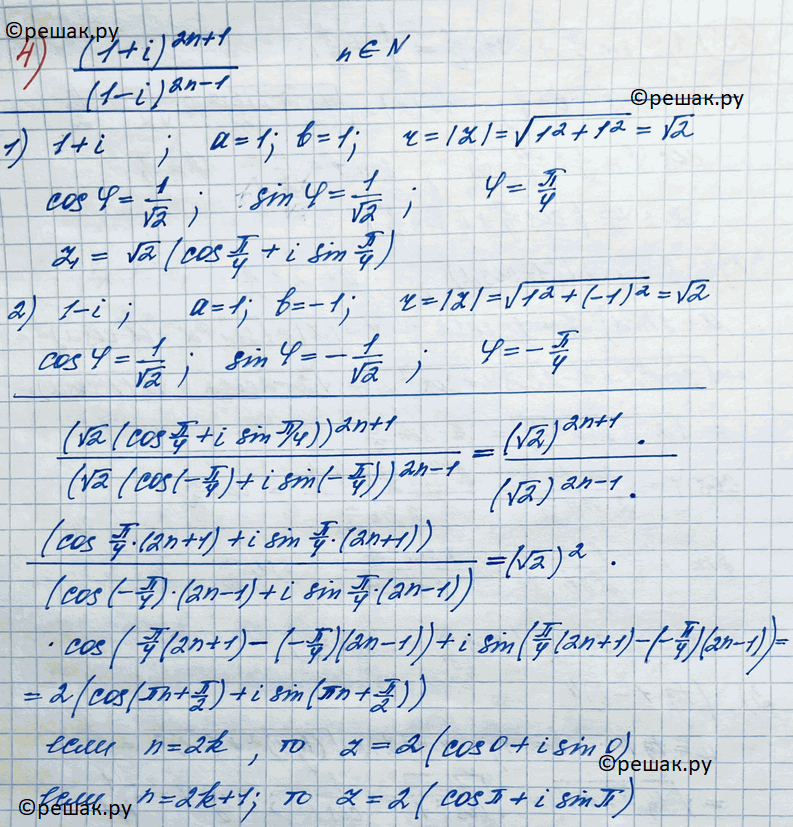 ©решак.ру
4) (1+i)^(2n+1) / (1-i)^(2n-1)    n ∈ N
©решак.ру
1) 1+i ; a=1; b=1; r=|z|=√(1²+1²)=√2
cos φ = 1/√2 ; sin φ = 1/√2 ; φ = π/4
z₁ = √2 (cos π/4 + i sin π/4)
2) 1-i ; a=1; b=-1; r=|z|=√(1²+(-1)²)=√2
cos φ = 1/√2 ; sin φ = -1/√2 ; φ = -π/4
(√2 (cos π/4 + i sin π/4))^(2n+1) / (√2 (cos(-π/4) + i sin(-π/4))^(2n-1) = (√2)^(2n+1) · / (√2)^(2n-1) ·
(cos π/4·(2n+1) + i sin π/4·(2n+1)) / (cos(-π/4)·(2n-1) + i sin π/4·(2n-1)) = (√2)² ·
· cos(π/4(2n+1)-(-π/4)(2n-1)) + i sin(π/4(2n+1)-(-π/4)(2n-1)) =
= 2(cos(πn+π/2) + i sin(πn+π/2))
если n=2k , то z=2(cos0+i sin0)
©решак.ру
если n=2k+1; то z=2(cosπ+i sinπ)
©решак.ру